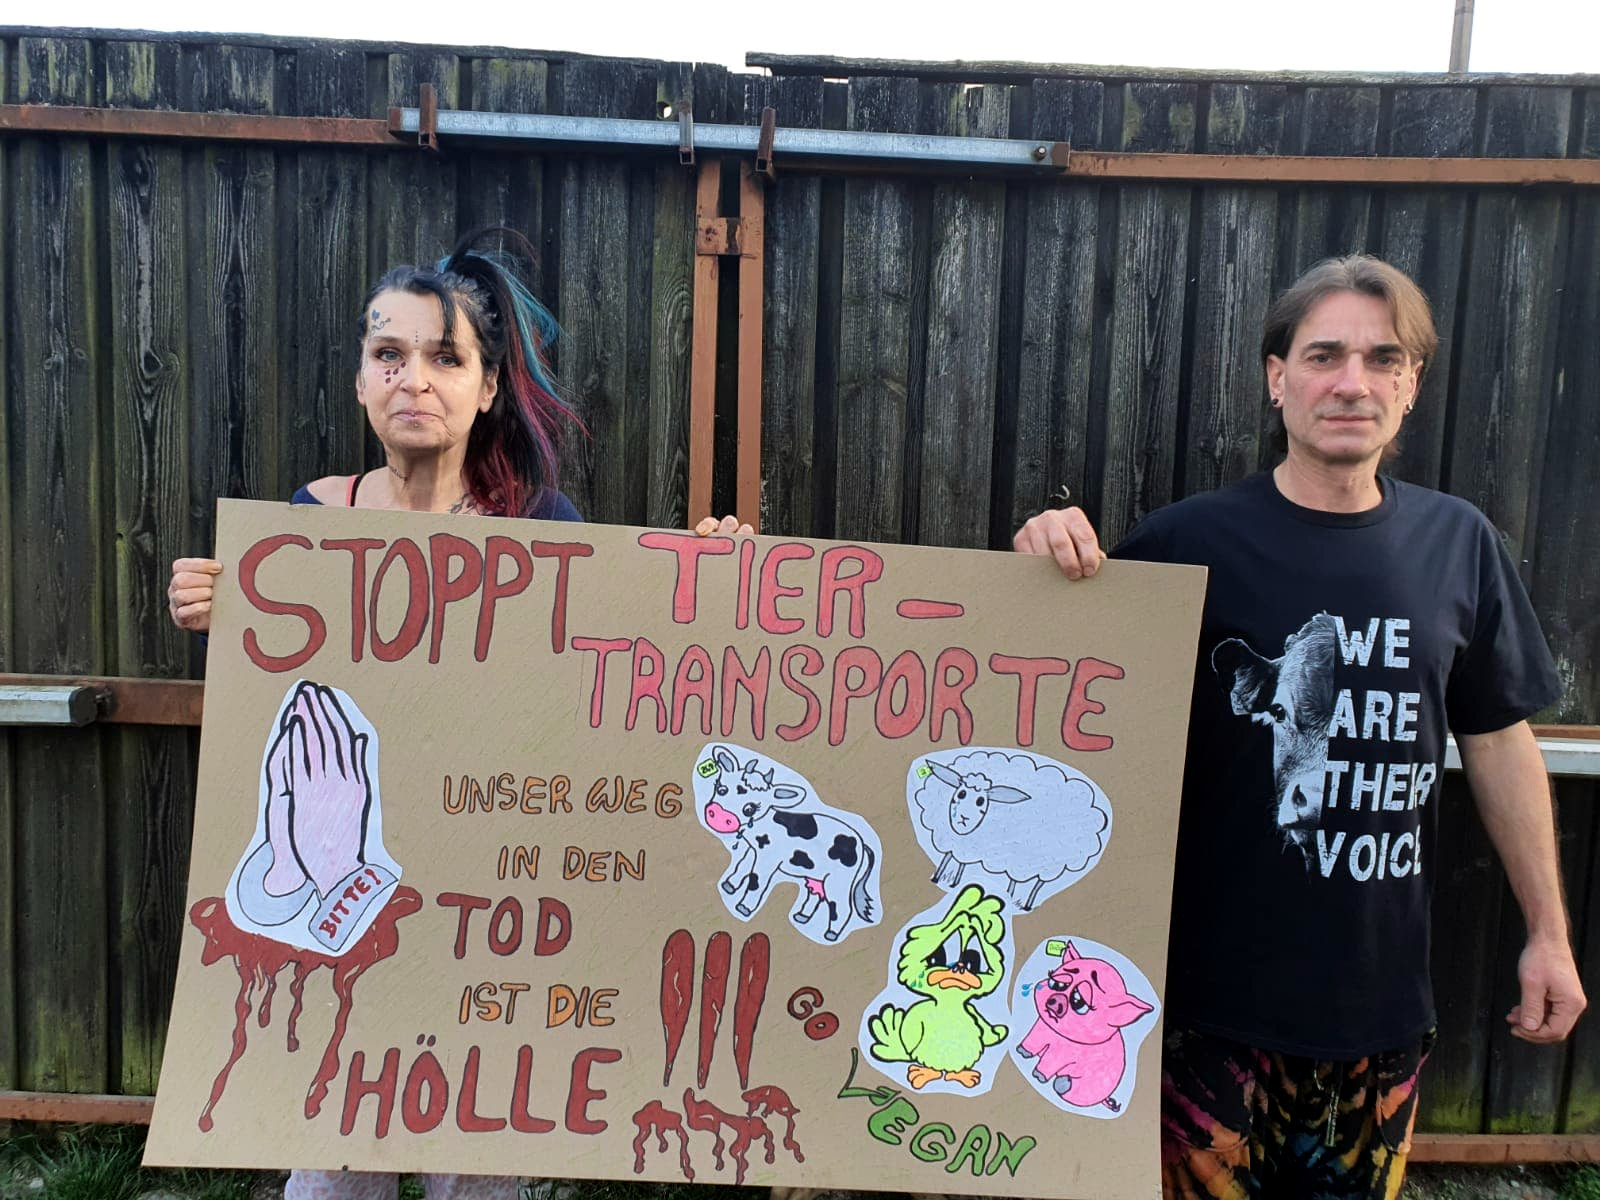 STOPPT TIER-
TRANSPORTE
UNSER WEG
IN DEN
TOD
IST DIE
HÖLLE !!!
BITTE!
GO
VEGAN
WE
ARE
THEIR
VOICE